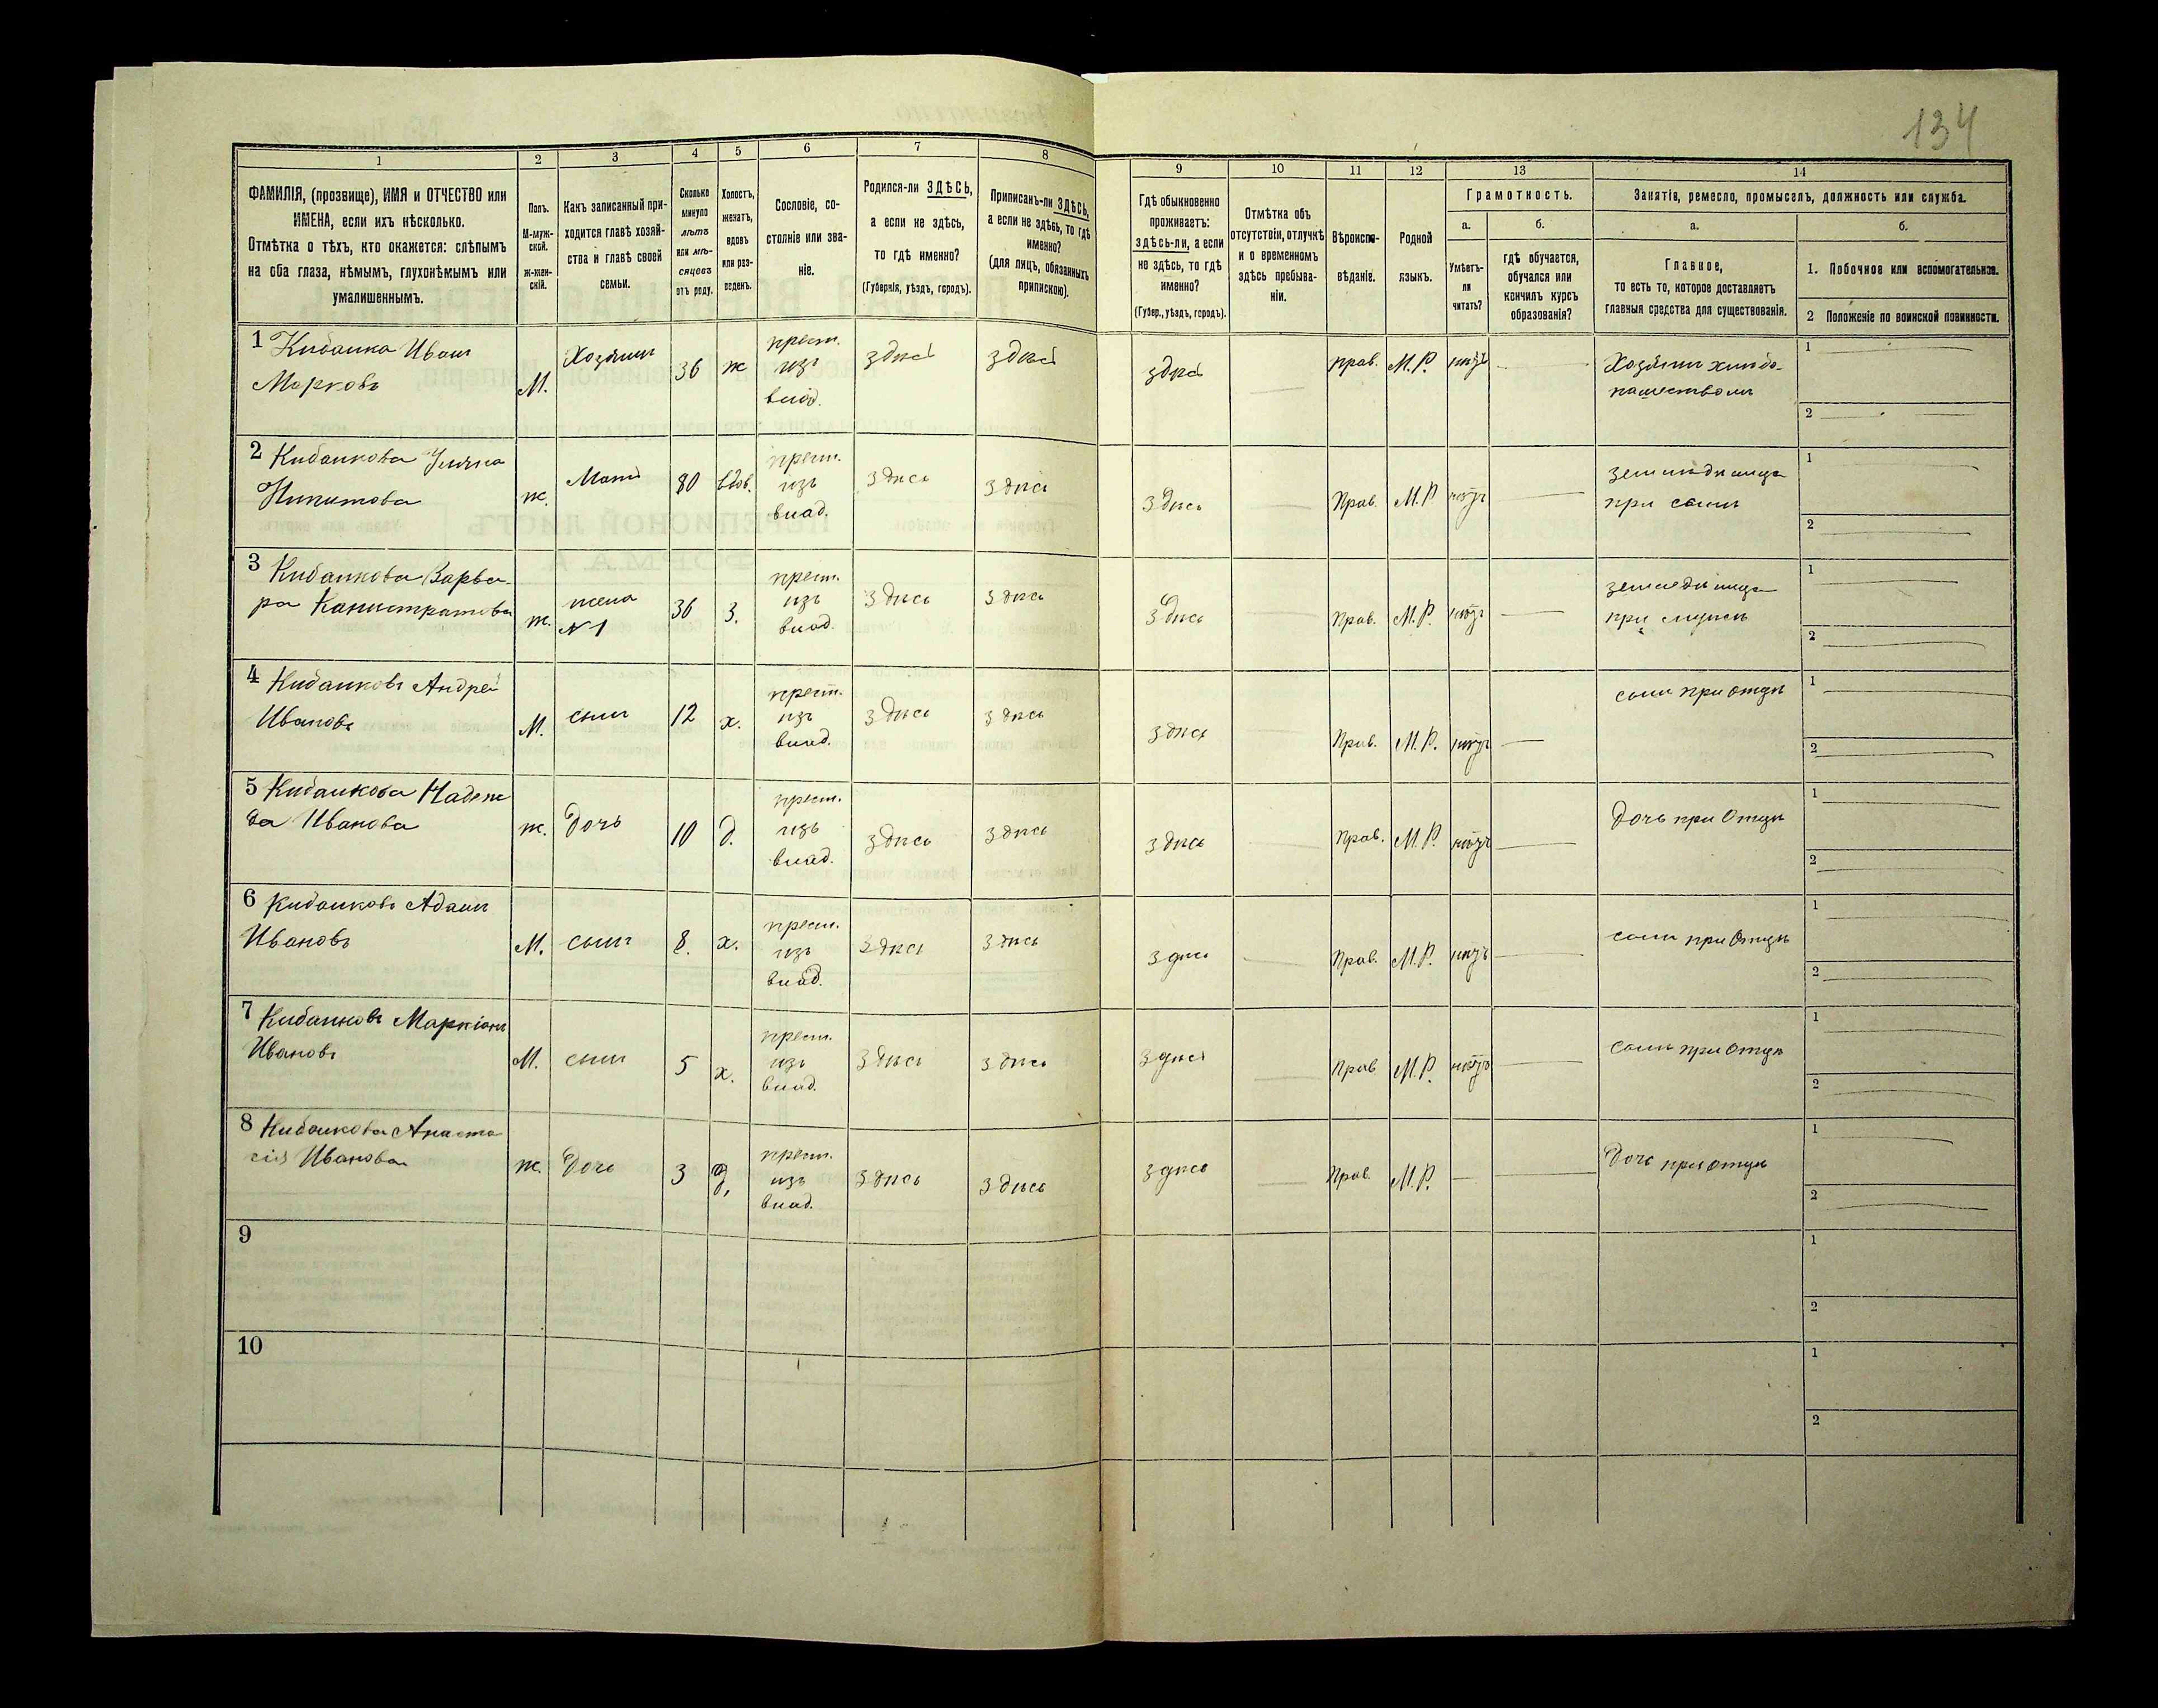 134
1 2 3 4 5 6 7 8 9 10 11 12 13 14
ФАМИЛІЯ, (прозвище), ИМЯ и ОТЧЕСТВО или
ИМЕНА, если ихъ нѣсколько.
Отмѣтка о тѣхъ, кто окажется: слѣпымъ
на оба глаза, нѣмымъ, глухонѣмымъ или
умалишеннымъ.
Полъ.
М-муж-
ской.
ж-жен-
скій.
Какъ записанный при-
ходится главѣ хозяй-
ства и главѣ своей
семьи.
Сколько
минуло
лѣтъ
или мѣ-
сяцевъ
отъ роду.
Холостъ,
женатъ,
вдовъ
или раз-
веденъ.
Сословіе, со-
стояніе или зва-
ніе.
Родился-ли ЗДѢСЬ,
а если не здѣсь,
то гдѣ именно?
(Губернія, уѣздъ, городъ).
Приписанъ-ли ЗДѢСЬ,
а если не здѣсь, то гдѣ
именно?
(для лицъ, обязанныхъ
припискою).
Гдѣ обыкновенно
проживаетъ:
здѣсь-ли, а если
не здѣсь, то гдѣ
именно?
(Губер., уѣздъ, городъ).
Отмѣтка объ
отсутствіи, отлучкѣ
и о временномъ
здѣсь пребыва-
ніи.
Вѣроиспо-
вѣданіе.
Родной
языкъ.
Грамотность.
а.
Умѣетъ-
ли
читать?
б.
гдѣ обучается,
обучался или
кончилъ курсъ
образованія?
Занятія, ремесло, промыселъ, должность или служба.
а.
Главное,
то есть то, которое доставляетъ
главныя средства для существованія.
б.
1. Побочное или вспомогательное.
2 Положеніе по воинской повинности.
1 Иванъ
Марковъ
М. Хозяинъ 36 ж крест. изъ влад. здѣсь здѣсь здѣсь прав. М.Р. нѣтъ Хозяинъ хлѣбо-
пашествомъ
1
2
2
Никитова
ж. Мать 80 вдов. крест. изъ влад. здѣсь здѣсь здѣсь Прав. М.Р. нѣтъ
при сынѣ
1
2
3 Варва-
ра Калистратова
ж. жена
№ 1 36 З. крест. изъ влад. здѣсь здѣсь здѣсь Прав. М.Р. нѣтъ
при мужѣ
1
2
4 Андрей
Ивановъ
М. сынъ 12 х. крест. изъ влад. здѣсь здѣсь здѣсь Прав. М.Р. нѣтъ сынъ при отцѣ
1
2
5 Надеж
да Иванова
ж. Дочь 10 д. крест. изъ влад. здѣсь здѣсь здѣсь Прав. М.Р. нѣтъ Дочь при Отцѣ
1
2
6 Адамъ
Ивановъ
М. сынъ 8. х. крест. изъ влад. здѣсь здѣсь здѣсь Прав. М.Р. нѣтъ сынъ при Отцѣ
1
2
7 Маркіанъ
Ивановъ
М. сынъ 5 х. крест. изъ влад. здѣсь здѣсь здѣсь Прав М.Р. нѣтъ сынъ при Отцѣ
1
2
8 Анаста
сія Иванова
ж. Дочь 3 д, крест. изъ влад. здѣсь здѣсь здѣсь Прав. М.Р. Дочь при отцѣ
1
2
9
1
2
10
1
2